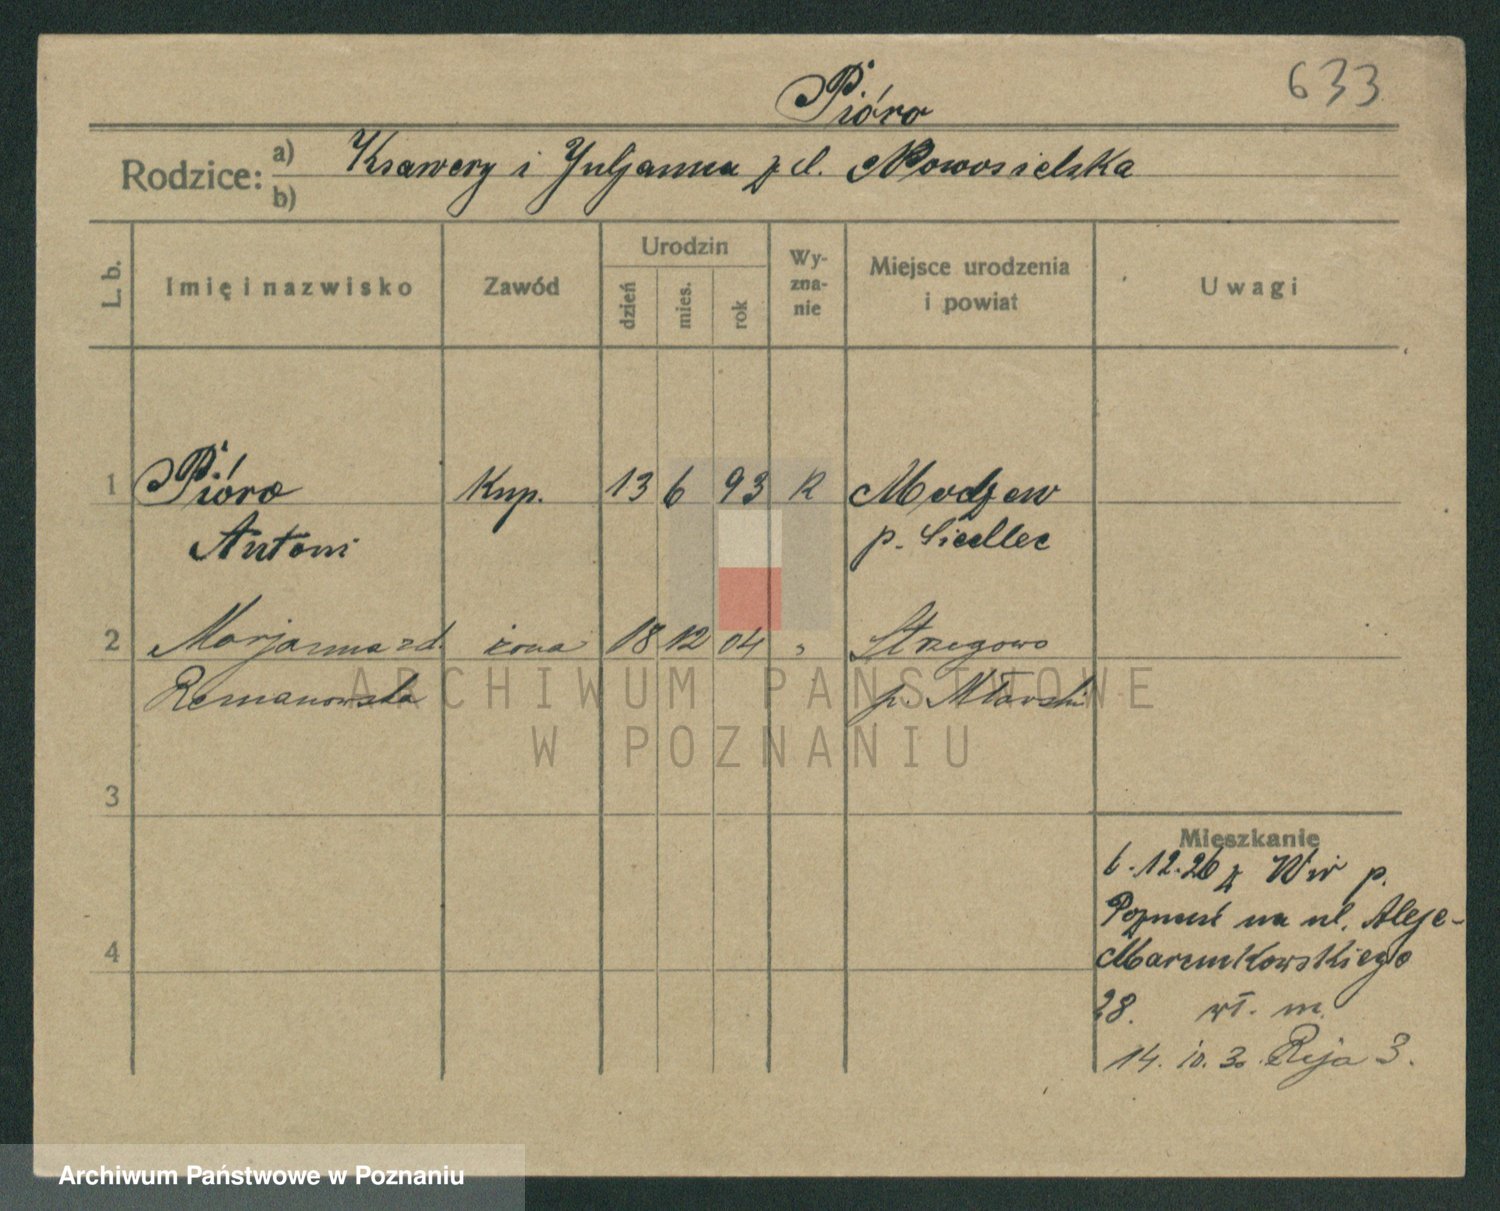 633
Pióro
Rodzice: a) Ksawery i Juljanna z d. Nowosielska
b)
L. b. Imię i nazwisko Zawód Urodzin dzień mies. rok Wyznanie Miejsce urodzenia i powiat Uwagi
1 Pióro Kup. 13 6 93 R Modzew
Antoni p. Siedlec
2 Marjanna z d. żona 18 12 04 " Strzegowo
Romanowska p. Mławski
ARCHIWUM PAŃSTWOWE
W POZNANIU
3
Mieszkanie
6.12.26 z Wir p.
Poznań na ul. Aleje-
4
Marcinkowskiego
28. wł. m.
14. 10. 30 Reja 3.
Archiwum Państwowe w Poznaniu